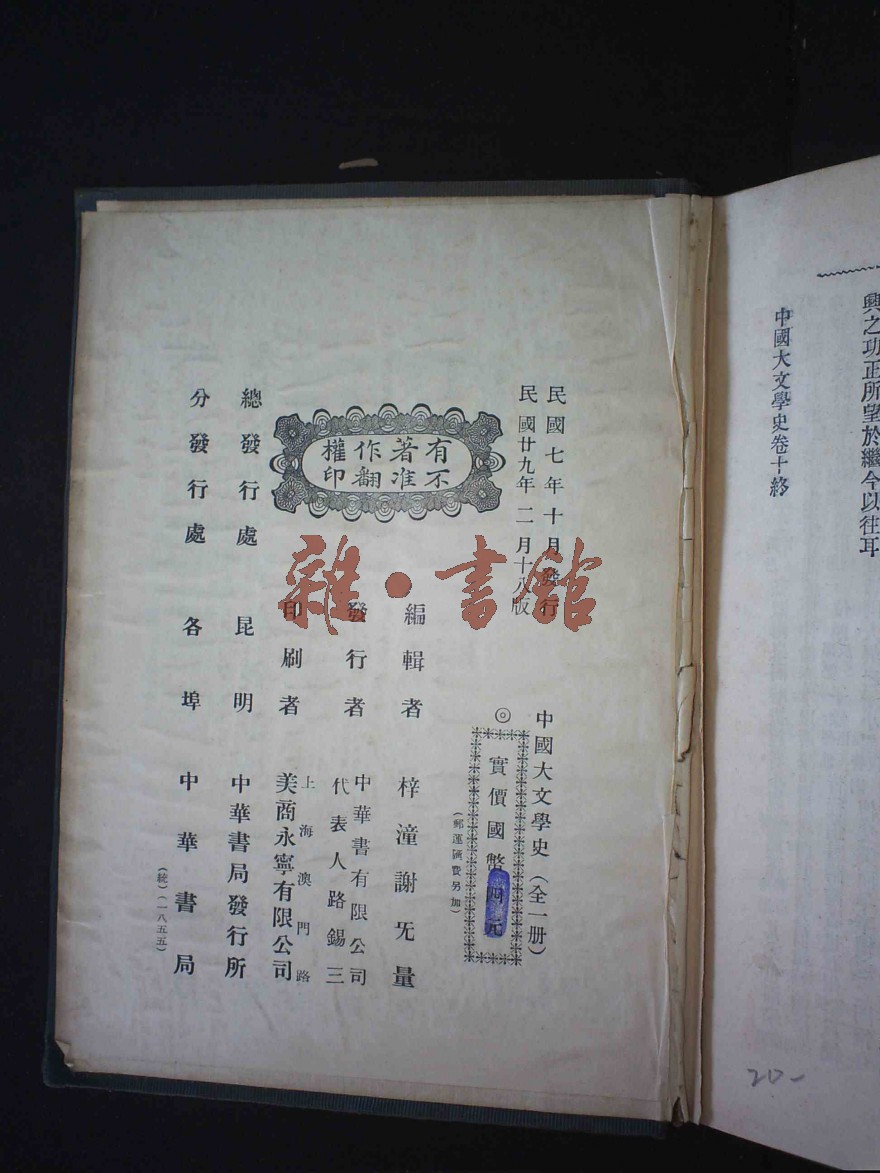 興之功正所望於繼今以往耳
中國大文學史卷十終
民國七年十月發行
民國廿九年二月十八版
有著作權
不准翻印
中國大文學史（全一册）
◎實價國幣四元
（郵運匯費另加）
編輯者 梓潼謝无量
發行者 中華書有限公司
代表人路錫三
印刷者 上海澳門路
美商永寧有限公司
總發行處 昆明 中華書局發行所
分發行處 各埠 中華書局
（統）（一八五五）
雜·書館
20-